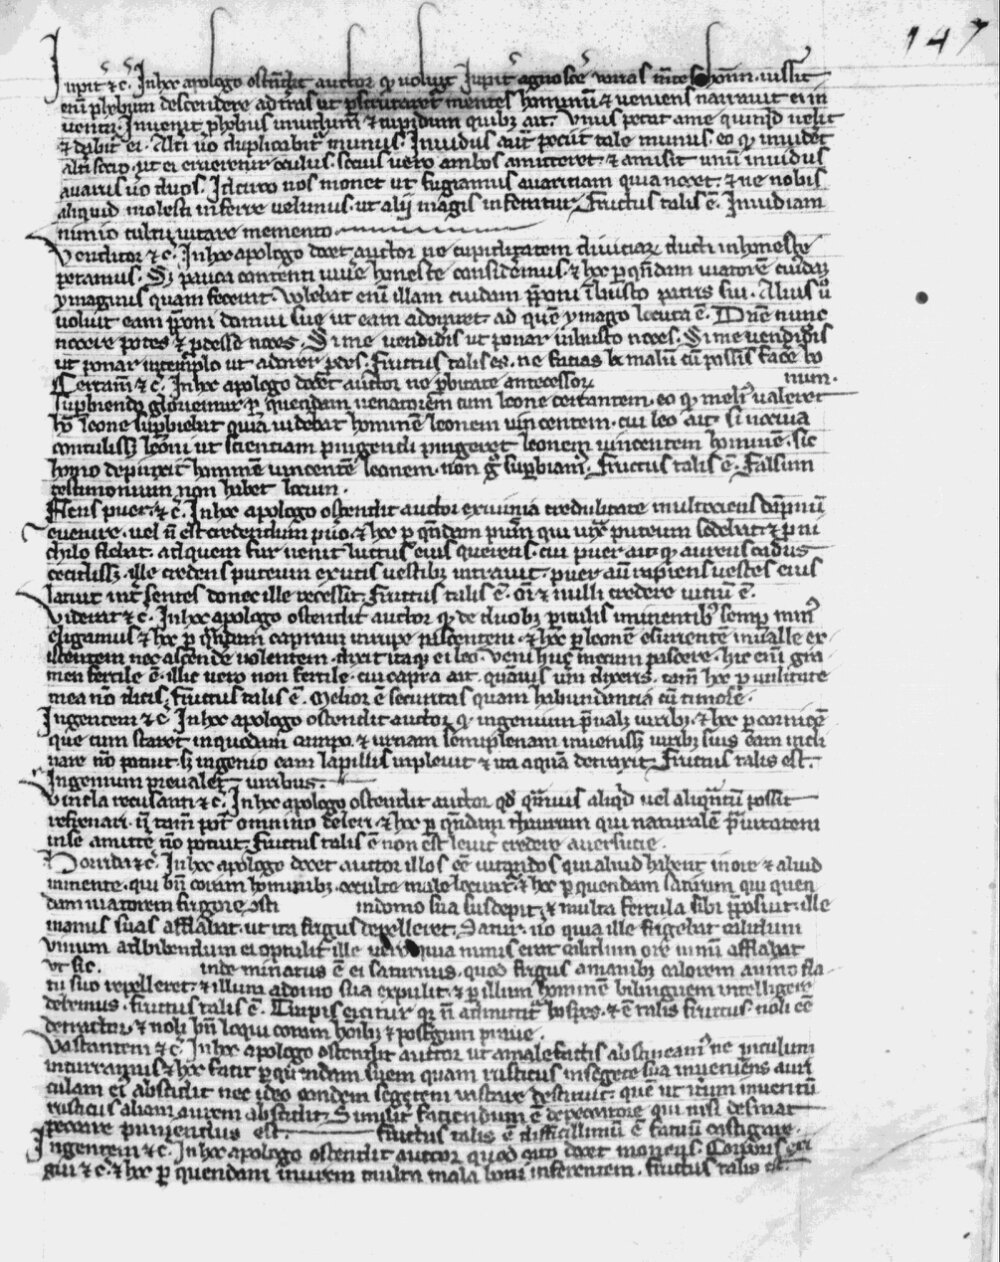 147
Iupit̄ &c̄. In hoc apologo ostendit auctor qͥ uoluit Iupit̄ agnosce uarias mētes hoīm. iussit
enī phebum descendere ad t̄ras ut pscrutaret̄ mentes hominū & ueniens narrauit ei in
uentū. Inuenit phebus inuidum & cupidum quibꝫ ait. Vnus petat a me quicqͥd uelit
& dabit̄ ei. Alt̄i u̅o duplicabit̄ munus. Inuidus aut̄ peciit tale munus. eo qͥ inuidet̄
alt̄i socio. ut ei erueretur oculus. socius uero ambos amitteret. & amisit unū inuidus
auarus u̅o duos. Idcirco nos monet ut fugiamus auaritiam quia nocet. & ne nobis
aliquid molesti inferre uelimus. ut alij magis inferatur. Fructus talis ē. Inuidiam
nimio cultu uitare memento.
Venditor &c̄. In hoc apologo docet auctor ne cupiditatem diuiciaꝝ ducti inhoneste
petamus. Sꝫ pauca contenti uiuē honeste considemus. & hoc ꝑ qn̄dam uiatorē cuiꝰdā
ymaginis quam fecerat. Volebat enī illam cuidam p̄poni ī busto patris sui. Alius u̅
uoluit eam p̄poni domui sue ut eam adoraret. ad quē ymago locuta ē. Dn̄e nunc
nocere potes & prodesse noces. Si me uendidis ut ponar in busto noces. Si me uendidis
ut ponar in templo ut adorer prodes. Fructus talis es. ne facias de malū cū possis face bo
num.
Certam̄ &c̄. In hoc apologo docet auctor ne ꝓbitate antecessorꝝ
supbiendo gloriemur ꝑ quendam uenatorem cum leone certantem. eo qͥ meliꝰ ualeret
hō leone supbiebat quia uidebat hominē leonem uincentem. cui leo ait. si natura
contulissꝫ leoni ut scientiam pingendi pingeret leonem uincentem hominē. sic
homo depinxit hominē uincentē leonem. non gͦ supbiam. Fructus talis ē. Falsum
testimonium non habet locum.
Flens puer. &c̄. In hoc apologo ostendit auctor ex nimia credulitate multociens dāpnū
euenire. uel n̄ est credendum puero. & hoc ꝑ qn̄dam puerū qui iuxͣ puteum sedebat. & ꝑ ni
chylo flebat. ad quem fur uenit luctus eius querens. cui puer ait. qͥ aureus cadus
cecidissꝫ. ille credens puteum exutis uestibꝫ intrauit. puer aū rapiens uestes eius
latuit int̄ sentes donec ille recessit. Fructus talis ē. oī & nulli credere uitiū ē.
Viderat &c̄. In hoc apologo ostendit auctor qͥ de duobꝫ ꝑiculis iminentibꝰ semꝑ minꝰ
eligamus & hoc ꝑ qn̄dam capram in rupe pascentem. & hoc ꝑ leonē esurientē in ualle ex
istentem nec ascendē uolentem. dixit itaqͥ ei leo. Veni huc mecum pascere. hic enī gra
men fertile ē. illic uero non fertile. cui capra ait. quāuis uera dixeris. tam̄ hoc ꝑ utilitate
mea nō dicis. Fructus talis ē. Melior ē securitas quam habundantia cū timore.
Ingentem &c̄. In hoc apologo ostendit auctor qͥ ingenium p̄ualꝫ uiribꝫ. & hoc ꝑ cornicē
que cum staret in quodam campo. & urnam semiplenam inuenissꝫ uiribꝫ suis eam incli
nare nō potuit. sꝫ ingenio eam lapillis inpleuit & ita aquā detraxit. Fructus talis est.
Ingenium preualet uiribus.
Vincla recusanti &c̄. In hoc apologo ostendit auctor qd̄ qͣmuis aliqͥd uel aliqͣntū possit
refrenari. n̄ tam̄ pot̄ omnino deleri. & hoc ꝑ qn̄dam thaurum qui naturalē p̄uitatem
in se amittē nō potuit. Fructus talis ē non est leuit̄ credere auersucie.
Horrida &c̄. In hoc apologo docet auctor illos eē uitandos qui aliud habent in ore & aliud
in mente. qui bn̄ coram hominibꝫ. occulte male locunt̄. & hoc ꝑ quendam satirum qui quen
dam uiatorem frigore osti in domo sua suscepit. & multa fercula sibi p̄posuit. ille
manus suas afflabat. ut ita frigus depelleret. Satirꝰ. u̅o quia ille frigebat calidum
uinum ad bibendum ei optulit. ille uero quia nimis erat calidum ore uinū afflabat
ut sic. inde miratus ē ei satirus. quod frigus a manibꝫ calorem a uino fla
tu suo repelleret. & illum a domo sua expulit. & ꝑ illum hominē bilinguem intelligere
debemus. Fructus talis ē. Turpis eicitur qͥ n̄ admittit̄ hospes. & ē talis fructus. noli eē
detractor. & noli bn̄ loqui coram hoībꝫ & postergum praue.
Vastantem &c̄. In hoc apologo ostendit auctor ut a malefactis abstineamꝰ ne ꝑiculum
incurramus & hoc facit ꝑ quendam suem quam rusticus in segete sua inueniens auri
culam ei abscidit nec ideo eandem segetem uastare destitit. quē ut itͫum inuentū
rusticus aliam aurem abscidit. Similit̄ faciendum ē de peccatore qui nisi desinat
peccare puniendus est. Fructus talis ē difficillimū ē fatuū castigare.
Ingentem &c̄. In hoc apologo ostendit auctor quod quo docet moriens. Corporis exi
gui &c̄. & hoc ꝑ quendam murem multa mala boui inferentem. Fructus talis est.